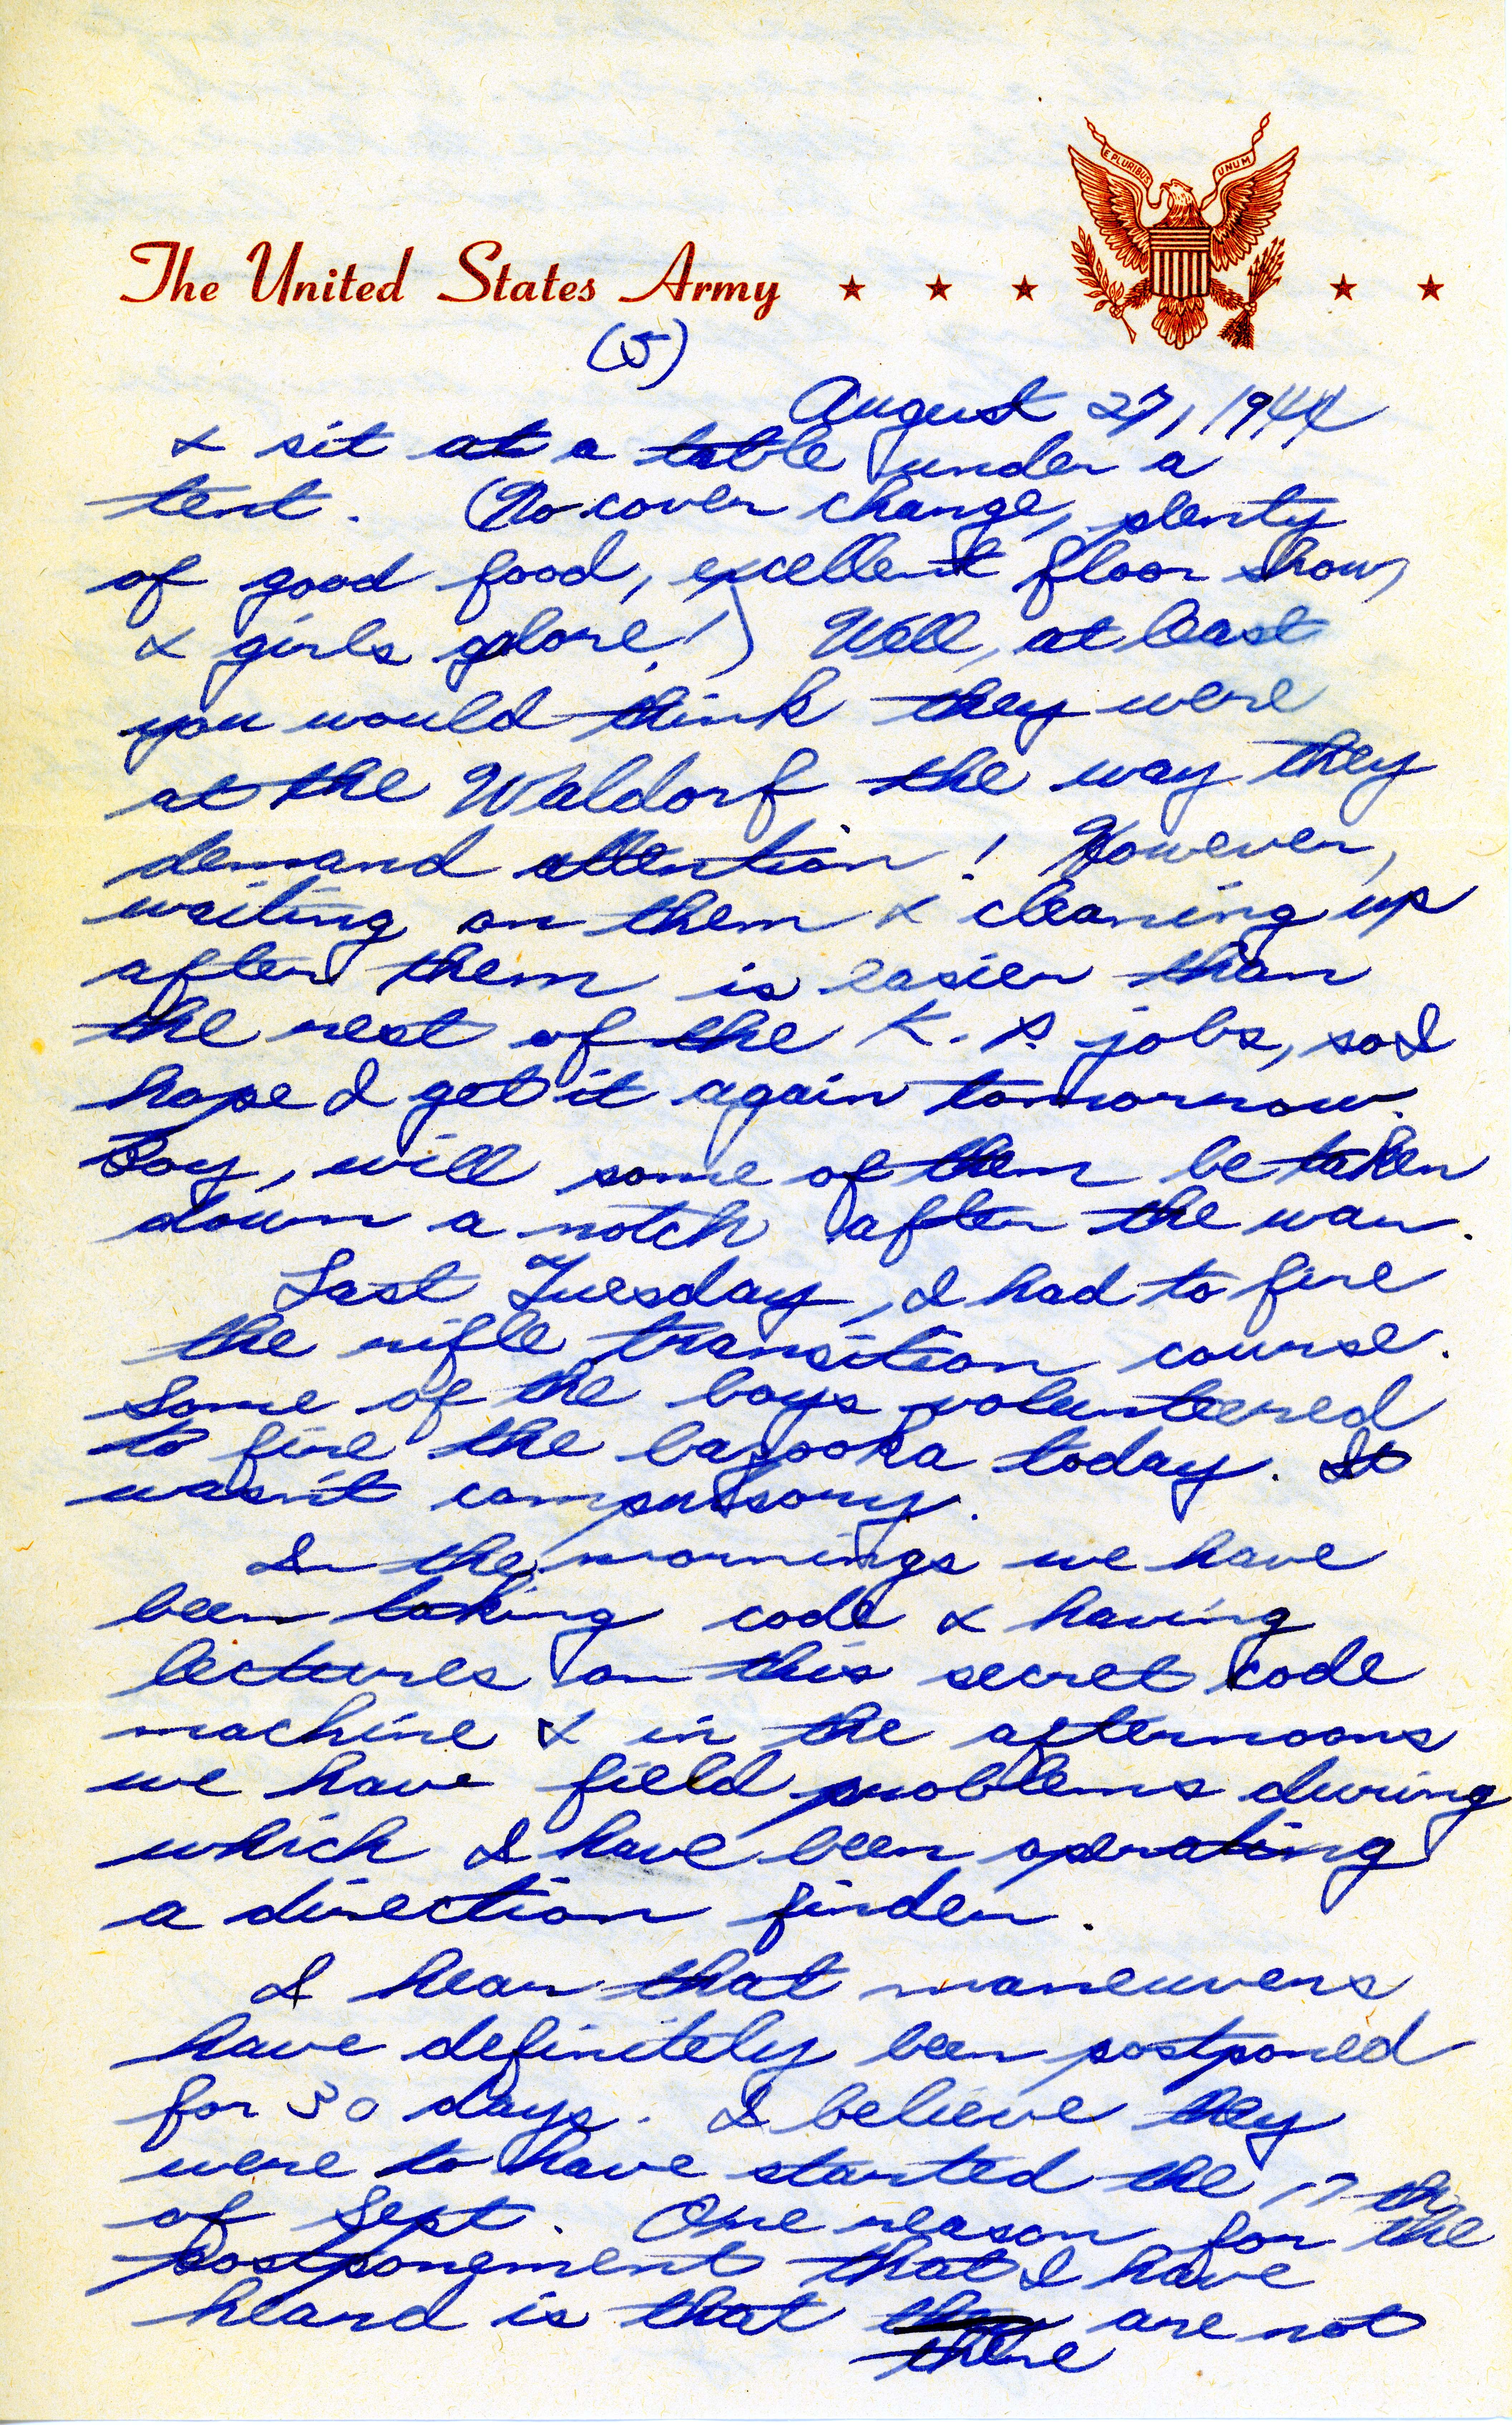 E PLURIBUS UNUM
The United States Army
(5)
August 27, 1944
& sit at a table under a
tent. (No cover charge, plenty
of good food, excellent floor show,
& girls galore!) Well, at least
you would think they were
at the Waldorf the way they
demand attention! However,
waiting on them & cleaning up
after them is easier than
the rest of the K.P. jobs, so I
hope I get it again tomorrow.
Boy, will some of them be taken
down a notch after the war.
Last Tuesday, I had to fire
the rifle transition course.
Some of the boys volunteered
to fire the bazooka today. It
wasn't compulsory.
In the mornings we have
been taking code & having
lectures on this secret code
machine & in the afternoons
we have field problems during
which I have been operating
a direction finder.
I hear that maneuvers
have definitely been postponed
for 30 days. I believe they
were to have started the 17th
of Sept. One reason for the
postponement that I have
heard is that there are not